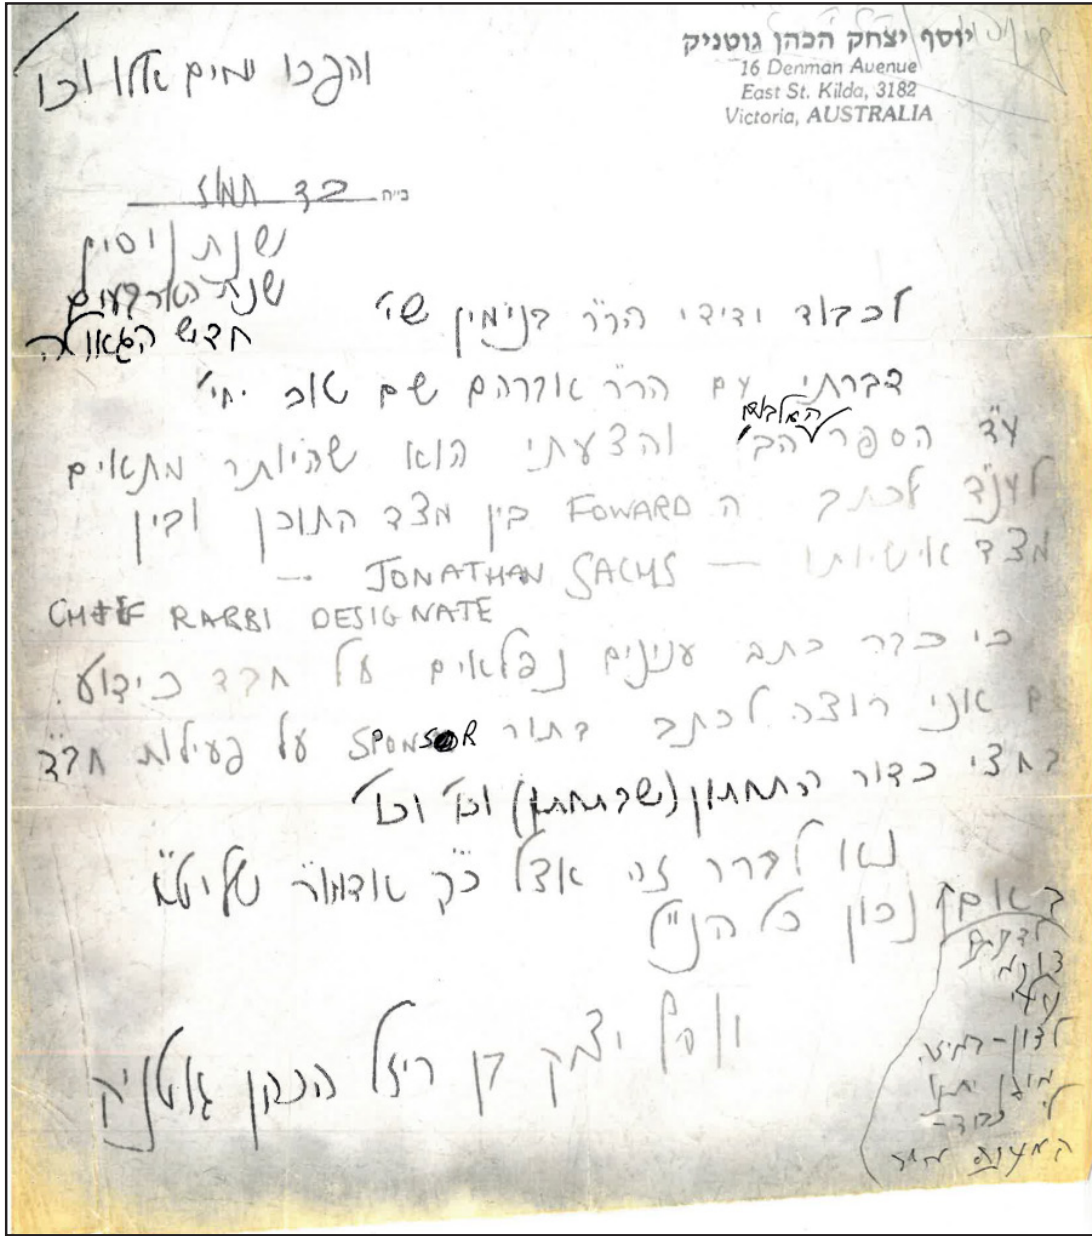 יוסף יצחק הכהן גוטניק
16 Denman Avenue
East St. Kilda, 3182
Victoria, AUSTRALIA
והפכו ימים אלו וכו'
ב"ה כד תמוז
שנת ניסים
שנת הארבעים
חדש הגאולה
לכבוד ידידי הר"ר בנימין שי'
דברתי עם הר"ר אברהם שם טוב יחי'
האלבום
ע"ד הספר הב' והצעתי הוא שהיותר מתאים
לענ"ד לכתב ה FOWARD בין מצד התוכן ובין
מצד אישיותו — JONATHAN SACHS —
CHIEF RABBI DESIGNATE
כי כבר כתב ענינים נפלאים על חבד כידוע.
גם אני רוצה לכתב בתור SPONSOR על פעילות חב"ד
בחצי כדור התחתון (שבתחתון) וכו' וכו'
נא לברר זה אצל כ"ק אדמו"ר שליט"א
באם נכון כל הנ"ל
יוסף יצחק בן ריזל הכהן גוטניק